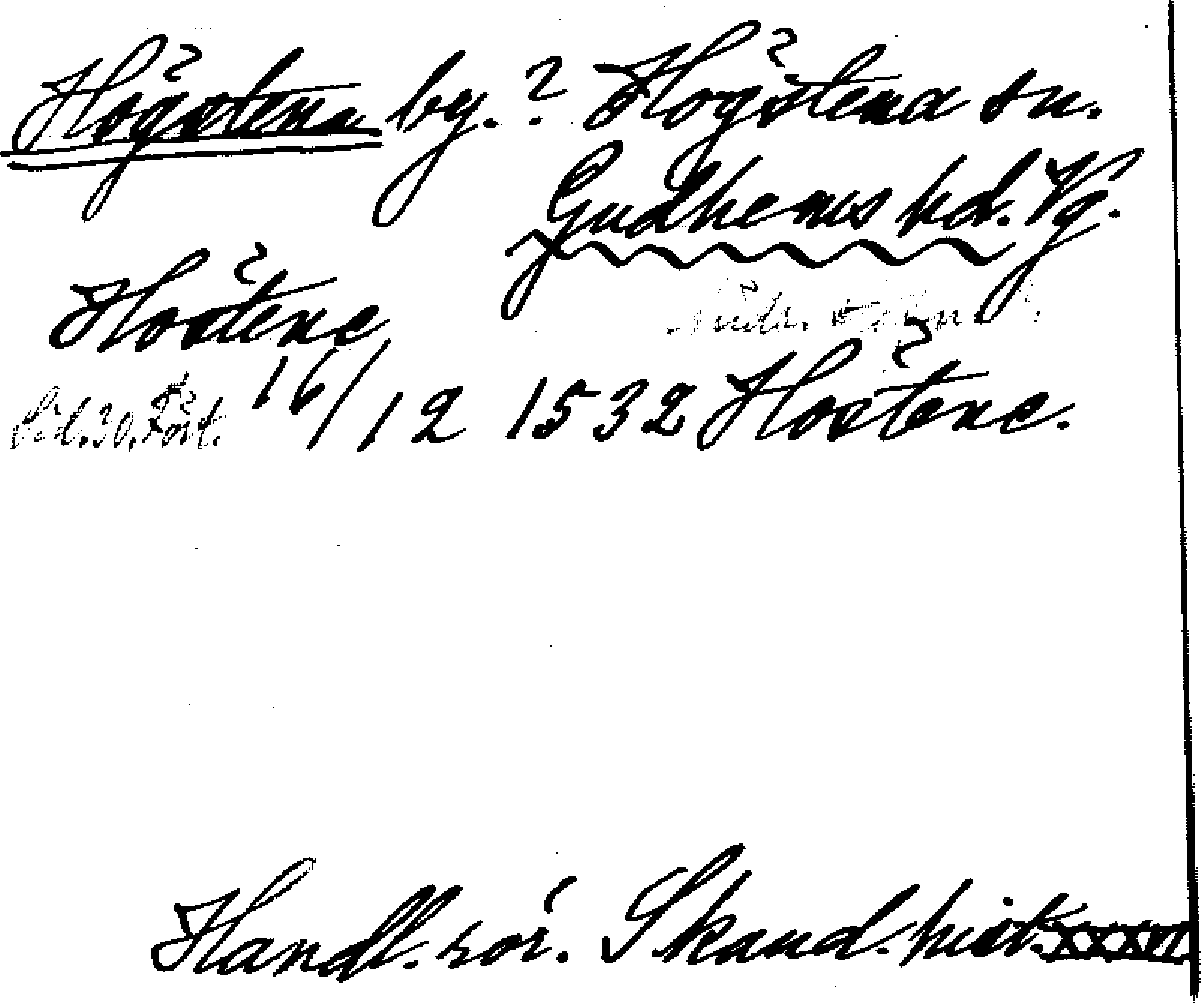 Högstena by.? Högstena sn.
Gudhems hd. Vg.
Höstene
sid. 30. 16/12 1532 Höstene.
Handl. rör. Skand. hist. XXXVI